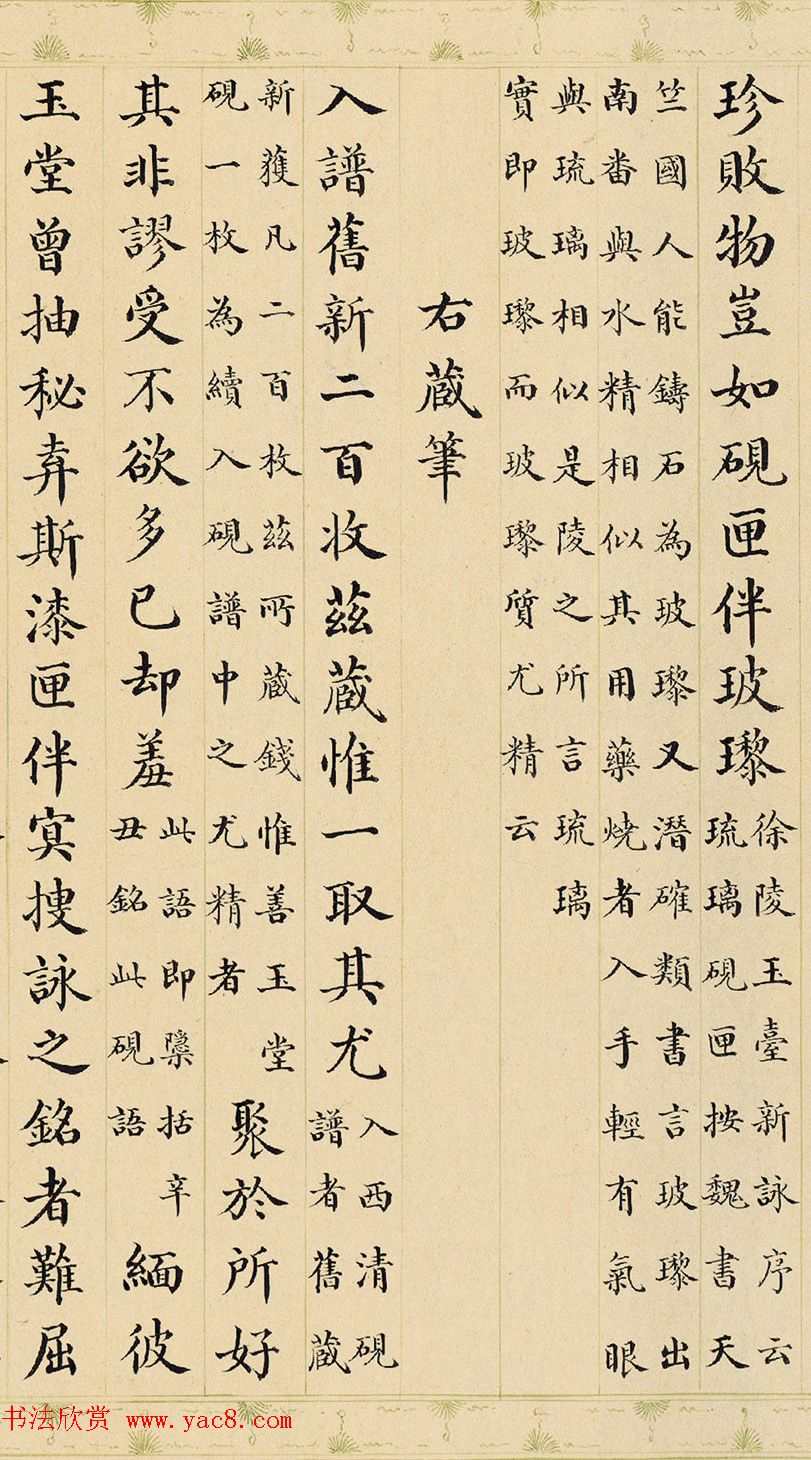 珍敗物豈如硯匣伴玻瓈
徐陵玉臺新詠序云
琉璃硯匣按魏書天
竺國人能鑄石為玻瓈又潛確類書言玻瓈出
南番與水精相似其用藥燒者入手輕有氣眼
與琉璃相似是陵之所言琉璃
實即玻瓈而玻瓈質尤精云
右蔵筆
入譜舊新二百收茲蔵惟一取其尤
入西清硯
譜者舊蔵
新獲凡二百枚茲所蔵錢惟善玉堂
硯一枚為續入硯譜中之尤精者
聚於所好
其非謬受不欲多已却羞
此語即檃括辛
丑銘此硯語
緬彼
玉堂曾抽秘弆斯漆匣伴㝠搜詠之銘者難屈
书法欣赏 www.yac8.com